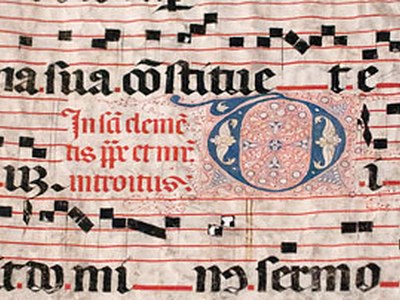 na.sua.cōstitue t.e
In sc̄i clemē
tis pp̄r et mr̄.
introitus:
D i
it.do mi nꝰ.sermo